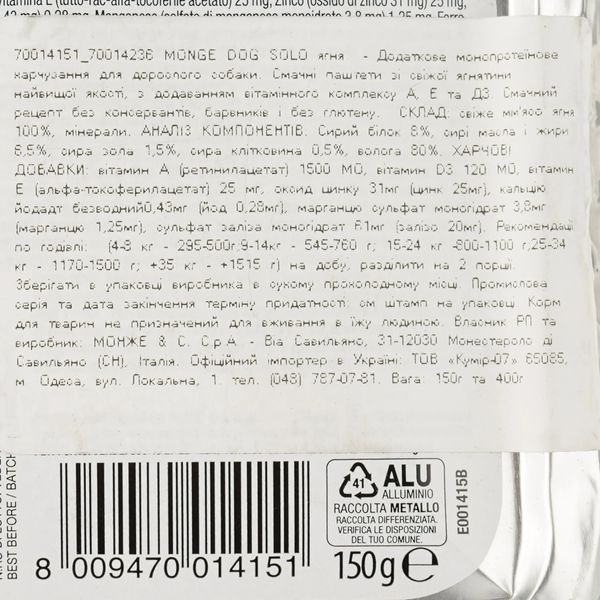 vitamina E (tutto-rac-alfa-tocoferile acetato) 25 mg, Zinco (ossido di zinco 31 mg) 25 mg,
0,28 mg), Manganese (solfato di manganese monoidrato 3,8 mg) 1,25 mg, Ferro
70014151_70014236 MONGE DOG SOLO ягня - Додаткове монопротеїнове
харчування для дорослого собаки. Смачні паштети зі свіжої ягнятини
найвищої якості, з додаванням вітамінного комплексу А, Е та Д3. Смачний
рецепт без консервантів, барвників і без глютену. СКЛАД: свіже м'ясо ягня
100%, мінерали. АНАЛІЗ КОМПОНЕНТІВ: Сирий білок 8%, сирі масла і жири
6,5%, сира зола 1,5%, сира клітковина 0,5%, волога 80%. ХАРЧОВІ
ДОБАВКИ: вітамін А (ретинилацетат) 1500 МО, вітамін D3 120 МО, вітамін
Е (альфа-токоферилацетат) 25 мг, оксид цинку 31мг (цинк 25мг), кальцію
йодадт безводний0,43мг (йод 0,28мг), марганцю сульфат моногідрат 3,8мг
(марганцю 1,25мг), сульфат заліза моногідрат 61мг (залізо 20мг). Рекомендації
по годівлі: (4-8 кг - 295-500г;9-14кг - 545-760 г; 15-24 кг -800-1100 г;25-34
кг - 1170-1500 г; +35 кг - +1515 г) на добу, разділити на 2 порції.
Зберігати в упаковці виробника в сухому прохолодному місці. Промислова
серія та дата закінчення терміну придатності: см штамп на упаковці Корм
для тварин не призначений для вживання в їжу людиною. Власник РП та
виробник: МОНЖЕ & С. С.р.А. - Віа Савильяно, 31-12030 Монестероло ді
Савильяно (CN), Італія. Офіційний імпортер в Україні: ТОВ «Кумір-07» 65085,
м. Одеса, вул. Локальна, 1. тел. (048) 787-07-81. Вага: 150г та 400г
BEST BEFORE / BATCH
8 009470 014151
41
ALU
ALLUMINIO
RACCOLTA METALLO
RACCOLTA DIFFERENZIATA.
VERIFICA LE DISPOSIZIONI
DEL TUO COMUNE.
150g e
E001415B